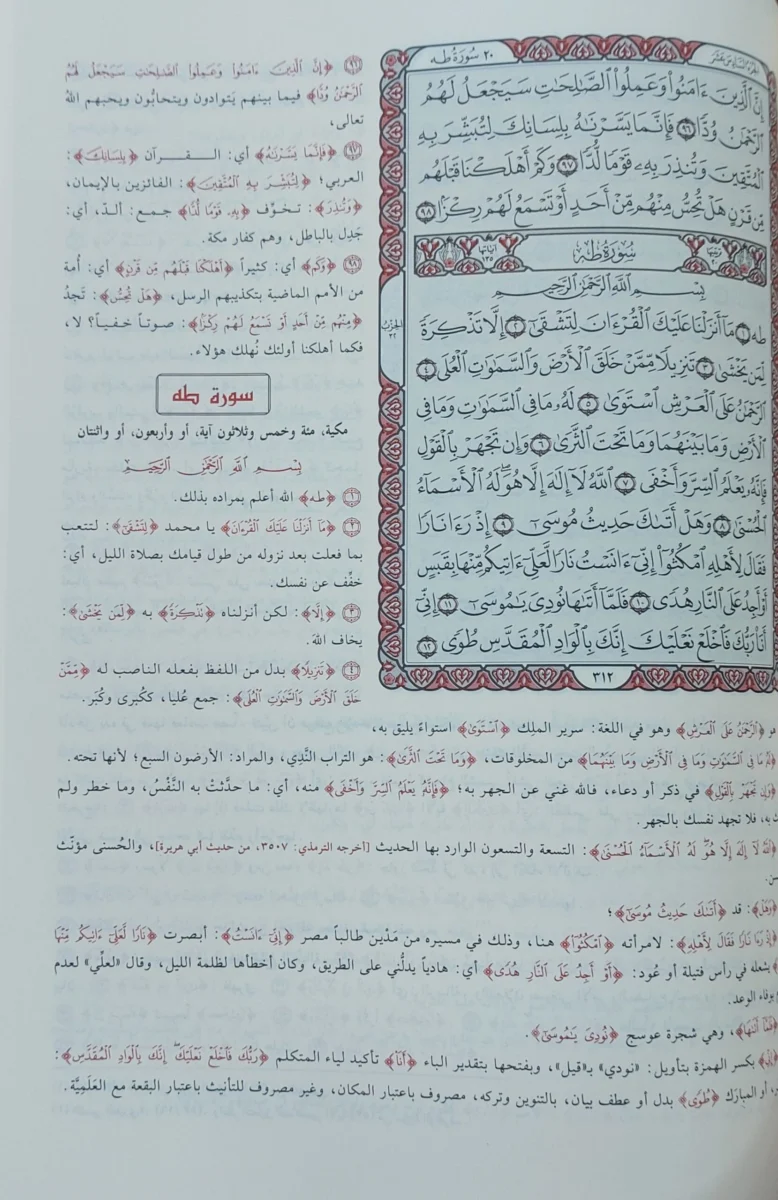 ٢٠ سُورَةُ طه
إِنَّ ٱلَّذِينَ ءَامَنُواْ وَعَمِلُواْ ٱلصَّٰلِحَٰتِ سَيَجْعَلُ لَهُمُ
ٱلرَّحْمَٰنُ وُدًّا ٩٦ فَإِنَّمَا يَسَّرْنَٰهُ بِلِسَانِكَ لِتُبَشِّرَ بِهِ
ٱلْمُتَّقِينَ وَتُنذِرَ بِهِۦ قَوْمًا لُّدًّا ٩٧ وَكَمْ أَهْلَكْنَا قَبْلَهُم
مِّن قَرْنٍ هَلْ تُحِسُّ مِنْهُم مِّنْ أَحَدٍ أَوْ تَسْمَعُ لَهُمْ رِكْزًۢا ٩٨
ترتيبها ٢٠ سُورَةُ طه آياتها ١٣٥
بِسْمِ ٱللَّهِ ٱلرَّحْمَٰنِ ٱلرَّحِيمِ
طه ١ مَآ أَنزَلْنَا عَلَيْكَ ٱلْقُرْءَانَ لِتَشْقَىٰٓ ٢ إِلَّا تَذْكِرَةً
لِّمَن يَخْشَىٰ ٣ تَنزِيلًا مِّمَّنْ خَلَقَ ٱلْأَرْضَ وَٱلسَّمَٰوَٰتِ ٱلْعُلَى ٤
ٱلرَّحْمَٰنُ عَلَى ٱلْعَرْشِ ٱسْتَوَىٰ ٥ لَهُۥ مَا فِى ٱلسَّمَٰوَٰتِ وَمَا فِى
ٱلْأَرْضِ وَمَا بَيْنَهُمَا وَمَا تَحْتَ ٱلثَّرَىٰ ٦ وَإِن تَجْهَرْ بِٱلْقَوْلِ
فَإِنَّهُۥ يَعْلَمُ ٱلسِّرَّ وَأَخْفَى ٧ ٱللَّهُ لَآ إِلَٰهَ إِلَّا هُوَ لَهُ ٱلْأَسْمَآءُ
ٱلْحُسْنَىٰ ٨ وَهَلْ أَتَىٰكَ حَدِيثُ مُوسَىٰٓ ٩ إِذْ رَءَا نَارًا
فَقَالَ لِأَهْلِهِ ٱمْكُثُوٓاْ إِنِّىٓ ءَانَسْتُ نَارًا لَّعَلِّىٓ ءَاتِيكُم مِّنْهَا بِقَبَسٍ
أَوْ أَجِدُ عَلَى ٱلنَّارِ هُدًى ١٠ فَلَمَّآ أَتَىٰهَا نُودِىَ يَٰمُوسَىٰٓ ١١ إِنِّىٓ
أَنَا۠ رَبُّكَ فَٱخْلَعْ نَعْلَيْكَ إِنَّكَ بِٱلْوَادِ ٱلْمُقَدَّسِ طُوًى ١٢
٣١٢
الحزب ٣٢
٩٦ ﴿إِنَّ ٱلَّذِينَ ءَامَنُوا وَعَمِلُوا ٱلصَّٰلِحَٰتِ سَيَجْعَلُ لَهُمُ
ٱلرَّحْمَٰنُ وُدًّا﴾ فيما بينهم يَتوادون ويتحابُّون ويحبهم اللهُ
تعالى،
٩٧ ﴿فَإِنَّمَا يَسَّرْنَٰهُ﴾ أي: القرآن ﴿بِلِسَانِكَ﴾:
العربي؛ ﴿لِتُبَشِّرَ بِهِ ٱلْمُتَّقِينَ﴾: الفائزين بالإيمان،
﴿وَتُنذِرَ﴾: تخوِّف ﴿بِهِۦ قَوْمًا لُّدًّا﴾ جمع: ألدّ، أي:
جَدِل بالباطل، وهم كفار مكة.
٩٨ ﴿وَكَمْ﴾ أي: كثيراً ﴿أَهْلَكْنَا قَبْلَهُم مِّن قَرْنٍ﴾ أي: أُمة
من الأمم الماضية بتكذيبهم الرسل، ﴿هَلْ تُحِسُّ﴾: تَجدُ
﴿مِنْهُم مِّنْ أَحَدٍ أَوْ تَسْمَعُ لَهُمْ رِكْزًا﴾: صوتاً خفياً؟ لا،
فكما أهلكنا أولئك نُهلك هؤلاء.
سورة طه
مكية، مئة وخمس وثلاثون آية، أو وأربعون، أو واثنتان
بِسْمِ ٱللَّهِ ٱلرَّحْمَٰنِ ٱلرَّحِيمِ
١ ﴿طه﴾ الله أعلم بمراده بذلك.
٢ ﴿مَآ أَنزَلْنَا عَلَيْكَ ٱلْقُرْءَانَ﴾ يا محمد ﴿لِتَشْقَىٰٓ﴾: لتتعب
بما فعلت بعد نزوله من طول قيامك بصلاة الليل، أي:
خفِّف عن نفسك.
٣ ﴿إِلَّا﴾: لكن أنزلناه ﴿تَذْكِرَةً﴾ به ﴿لِّمَن يَخْشَىٰ﴾:
يخاف الله.
٤ ﴿تَنزِيلًا﴾ بدل من اللفظ بفعله الناصب له ﴿مِّمَّنْ
خَلَقَ ٱلْأَرْضَ وَٱلسَّمَٰوَٰتِ ٱلْعُلَى﴾: جمع عُليا، ككُبرى وكُبَر.
هو ﴿ٱلرَّحْمَٰنُ عَلَى ٱلْعَرْشِ﴾ وهو في اللغة: سرير الملِك ﴿ٱسْتَوَىٰ﴾ استواءً يليق به،
﴿لَهُۥ مَا فِى ٱلسَّمَٰوَٰتِ وَمَا فِى ٱلْأَرْضِ وَمَا بَيْنَهُمَا﴾ من المخلوقات، ﴿وَمَا تَحْتَ ٱلثَّرَىٰ﴾: هو التراب النَّدِي، والمراد: الأرضون السبع؛ لأنها تحته.
﴿وَإِن تَجْهَرْ بِٱلْقَوْلِ﴾ في ذكر أو دعاء، فالله غني عن الجهر به؛ ﴿فَإِنَّهُۥ يَعْلَمُ ٱلسِّرَّ وَأَخْفَى﴾ منه، أي: ما حدَّثتْ به النَّفْسُ، وما خطر ولم
به، فلا تجهد نفسك بالجهر.
﴿ٱللَّهُ لَآ إِلَٰهَ إِلَّا هُوَ لَهُ ٱلْأَسْمَآءُ ٱلْحُسْنَىٰ﴾: التسعة والتسعون الوارد بها الحديث [أخرجه الترمذي: ٣٥٠٧، من حديث أبي هريرة]، والحُسنى مؤنّث
﴿وَهَلْ﴾: قد ﴿أَتَىٰكَ حَدِيثُ مُوسَىٰٓ﴾؛
﴿إِذْ رَءَا نَارًا فَقَالَ لِأَهْلِهِ﴾: لامرأته ﴿ٱمْكُثُوٓا﴾ هنا، وذلك في مسيره من مَدْين طالباً مصر ﴿إِنِّىٓ ءَانَسْتُ﴾: أبصرت ﴿نَارًا لَّعَلِّىٓ ءَاتِيكُم مِّنْهَا
بشعله في رأس فتيلة أو عُود: ﴿أَوْ أَجِدُ عَلَى ٱلنَّارِ هُدًى﴾ أي: هادياً يدلُّني على الطريق، وكان أخطأها لظلمة الليل، وقال «لعلّي» لعدم
بوفاء الوعد.
﴿فَلَمَّآ أَتَىٰهَا﴾، وهي شجرة عوسج ﴿نُودِىَ يَٰمُوسَىٰٓ﴾.
﴿إِنِّىٓ﴾ بكسر الهمزة بتأويل: «نودي» بـ«قيل»، وبفتحها بتقدير الباء ﴿أَنَا۠﴾ تأكيد لياء المتكلم ﴿رَبُّكَ فَٱخْلَعْ نَعْلَيْكَ إِنَّكَ بِٱلْوَادِ ٱلْمُقَدَّسِ﴾:
أو المبارَك ﴿طُوًى﴾ بدل أو عطف بيان، بالتنوين وتركه، مصروف باعتبار المكان، وغير مصروف للتأنيث باعتبار البقعة مع العَلَمِيَّة.